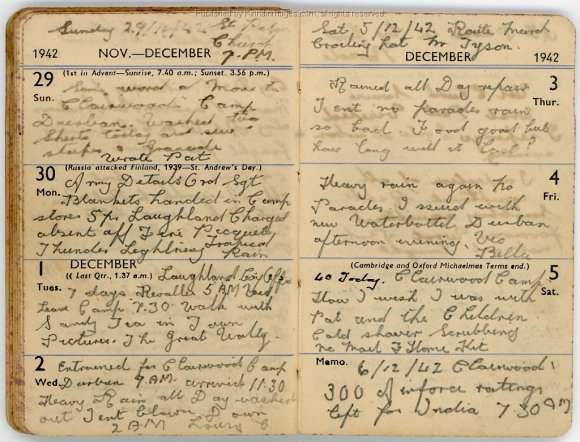 Published by Kandirimages.com, all rights reserved
Sunday 29/11/42 St
Church
7 P.M.
1942 NOV.—DECEMBER
29 (1st in Advent—Sunrise, 7.40 a.m.; Sunset, 3.56 p.m.)
Sun. word of Move to
Clairwood Camp
Durban. Washed two
Shorts today and sew
stripes
Wrote Pat
30 (Russia attacked Finland, 1939—St. Andrew's Day.)
Mon. Army Details Ord Sgt
Blankets handed in to Camp
stores 5 Laughland Charged
absent off Fire Picquet
Thunder Lightning Tropical
Rain
DECEMBER
1 (☾ Last Qtr., 1.37 a.m.) Laughland
Tues. 7 days Revalle 5 AM
Leave Camp 7.30 Walk with
Sandy Tea in Town
Pictures. The Great
2 Entrained for Clairwood Camp
Wed. Durban 7 AM arriving 11.30
Heavy Rain all Day washed
out Tent Blown Down
2 AM
Sat, 5/12/42 Route March
hot Mr Tyson.
DECEMBER 1942
3
Thur.
Rained all Day repair
Tent no parades rain
so bad. Food good but
how long will it Last?
4
Fri.
Heavy rain again No
Parades. Issued with
new Waterbottel Durban
afternoon evening. Vic
Bella
(Cambridge and Oxford Michaelmas Terms end.)
5
Sat.
40 Today. Clairwood Camp
How I wish I was with
Pat and the Children.
Cold shower Scrubbing
no Mail F Home Kit
Memo. 6/12/42 Clairwood
300 of ratings
left for India 7 30 AM